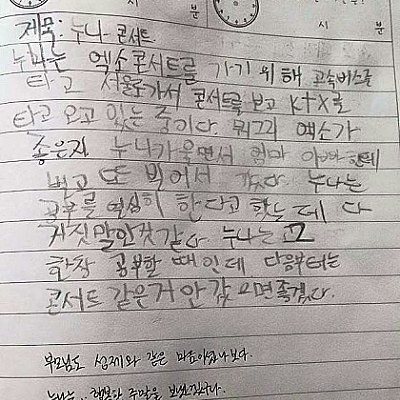 시 분 시 분
제목: 누나 콘서트
누나는 엑소콘서트를 가기 위해 고속버스를
타고 서울로가서 콘서트를 보고 ktx를
타고 오고 있는 중이다. 뭐그리 엑소가
좋은지 누나가울면서 엄마 아빠한테
빌고 또 빌어서 갔다. 누나는
공부를 열심히 한다고 했는데 다
거짓말인것같다 누나는 고2
한창 공부할 때인데 다음부터는
콘서트 같은거 안 갔으면좋겠다.
부모님도 성제와 같은 마음이셨나보다.
누나는.. 행복한 주말을 보냈겠구나.